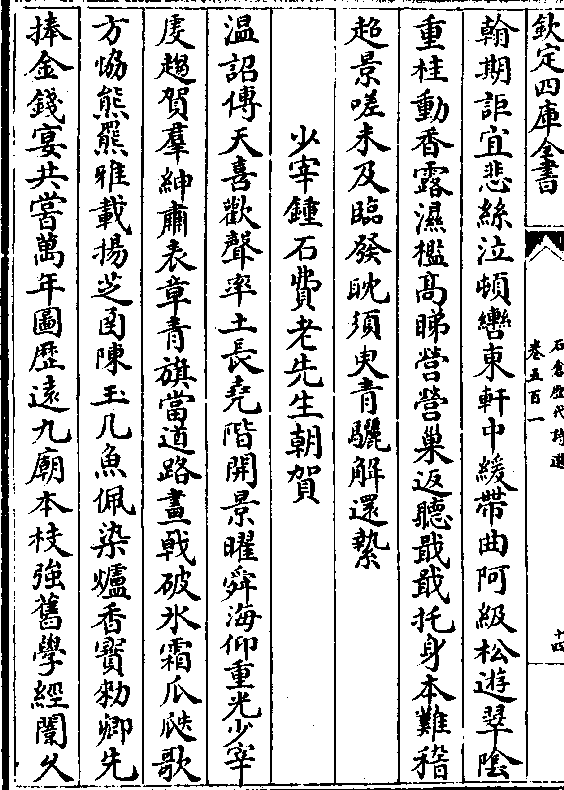 欽定四庫全書
石倉歴代詩選
卷五百一
十四
翰期詎宜悲絲泣頓轡東軒中緩帶曲阿級松遊翠陰
重桂動香露濕檻髙睇營營巢返聽戢戢托身本難稽
超景嗟未及臨發眈須臾青驪解還縶
少宰鍾石費老先生朝賀
温詔傳天喜歡聲率土長堯階開景曜舜海仰重光少宰
虔趨賀羣紳肅表章青旗當道路畫戟破氷霜瓜瓞歌
方恊熊羆雅載揚芝函陳玉几魚佩染爐香寳勅卿先
捧金錢宴共嘗萬年圖歴遠九廟本枝強舊學經闈久